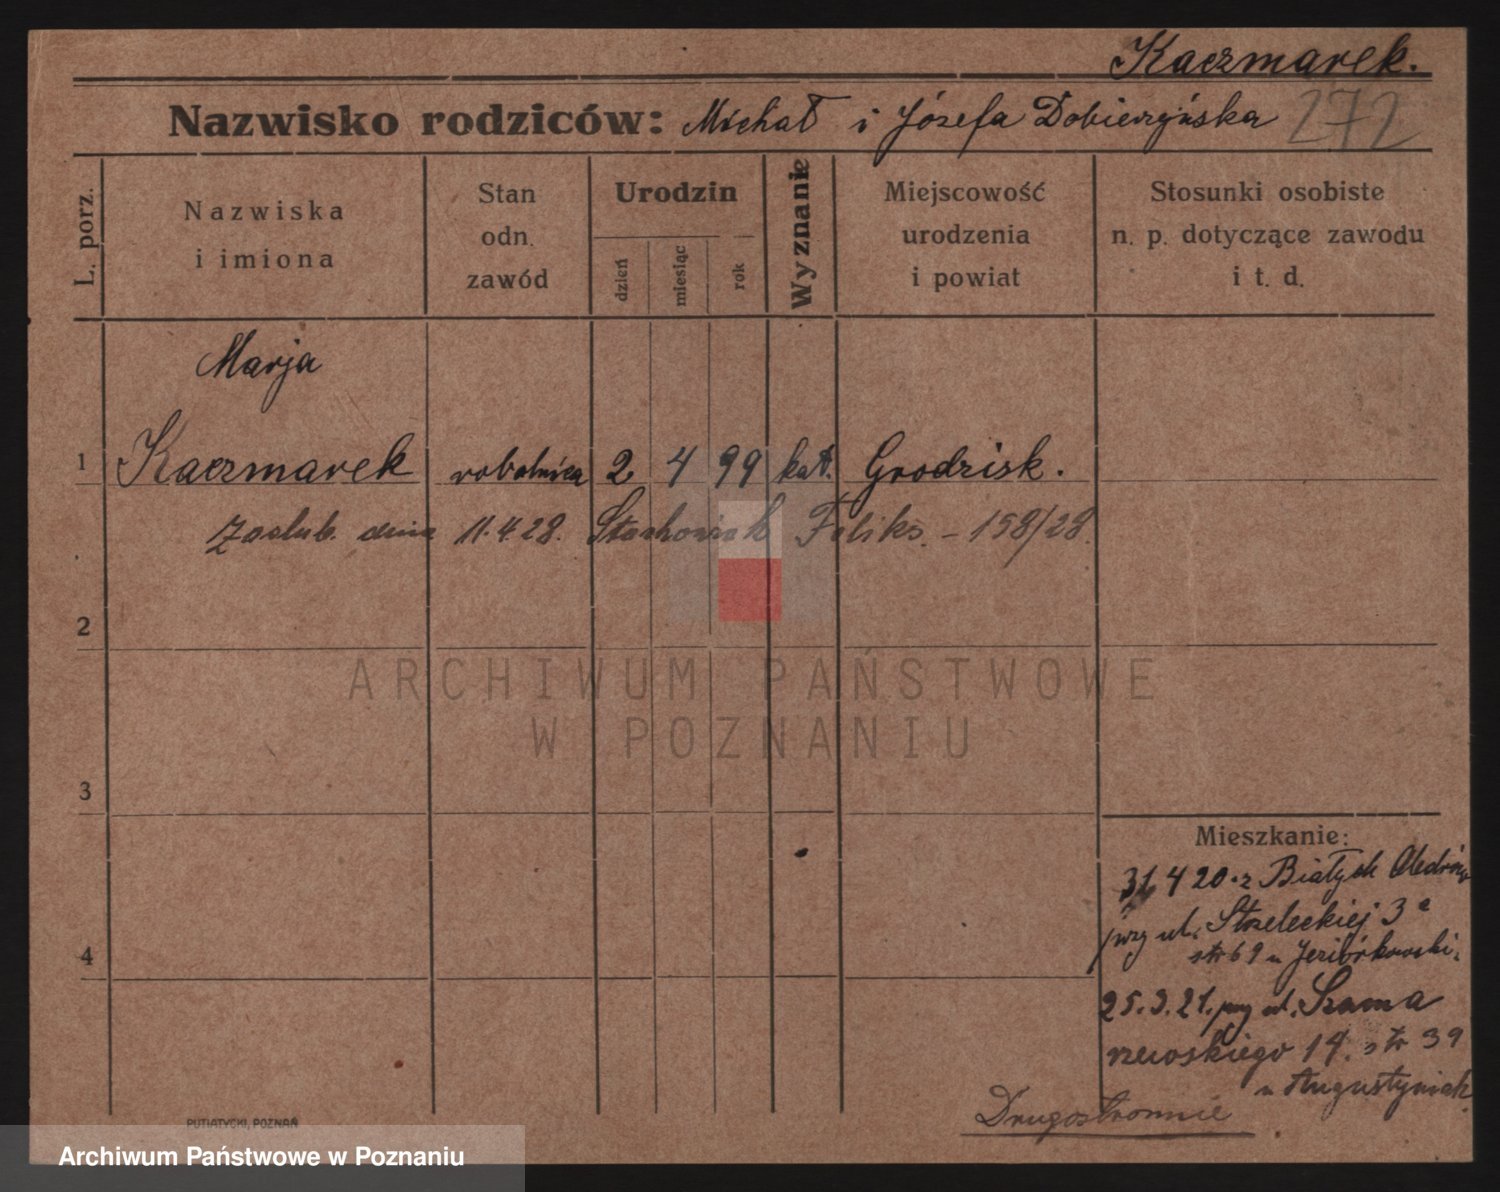 Kaczmarek.
Nazwisko rodziców: Michał i Józefa Dobierzyńska 272
L. porz.
Nazwiska
i imiona
Stan
odn.
zawód
Urodzin
dzień
miesiąc
rok
Wyznanie
Miejscowość
urodzenia
i powiat
Stosunki osobiste
n. p. dotyczące zawodu
i t. d.
Marja
1 Kaczmarek robotnica 2 4 99 kat. Grodzisk.
Zaślub. dnia 11.4.28. Stachowiak Feliks. – 158/28.
2
ARCHIWUM PAŃSTWOWE
W POZNANIU
3
Mieszkanie:
4 20. z Białych
przy ul. Strzeleckiej 3
4
str 69 u
25.3.21. przy ul. Szama
rzewskiego 14. str 39
u Augustyniak
Drugostronnie
PUTIATYCKI, POZNAŃ
Archiwum Państwowe w Poznaniu